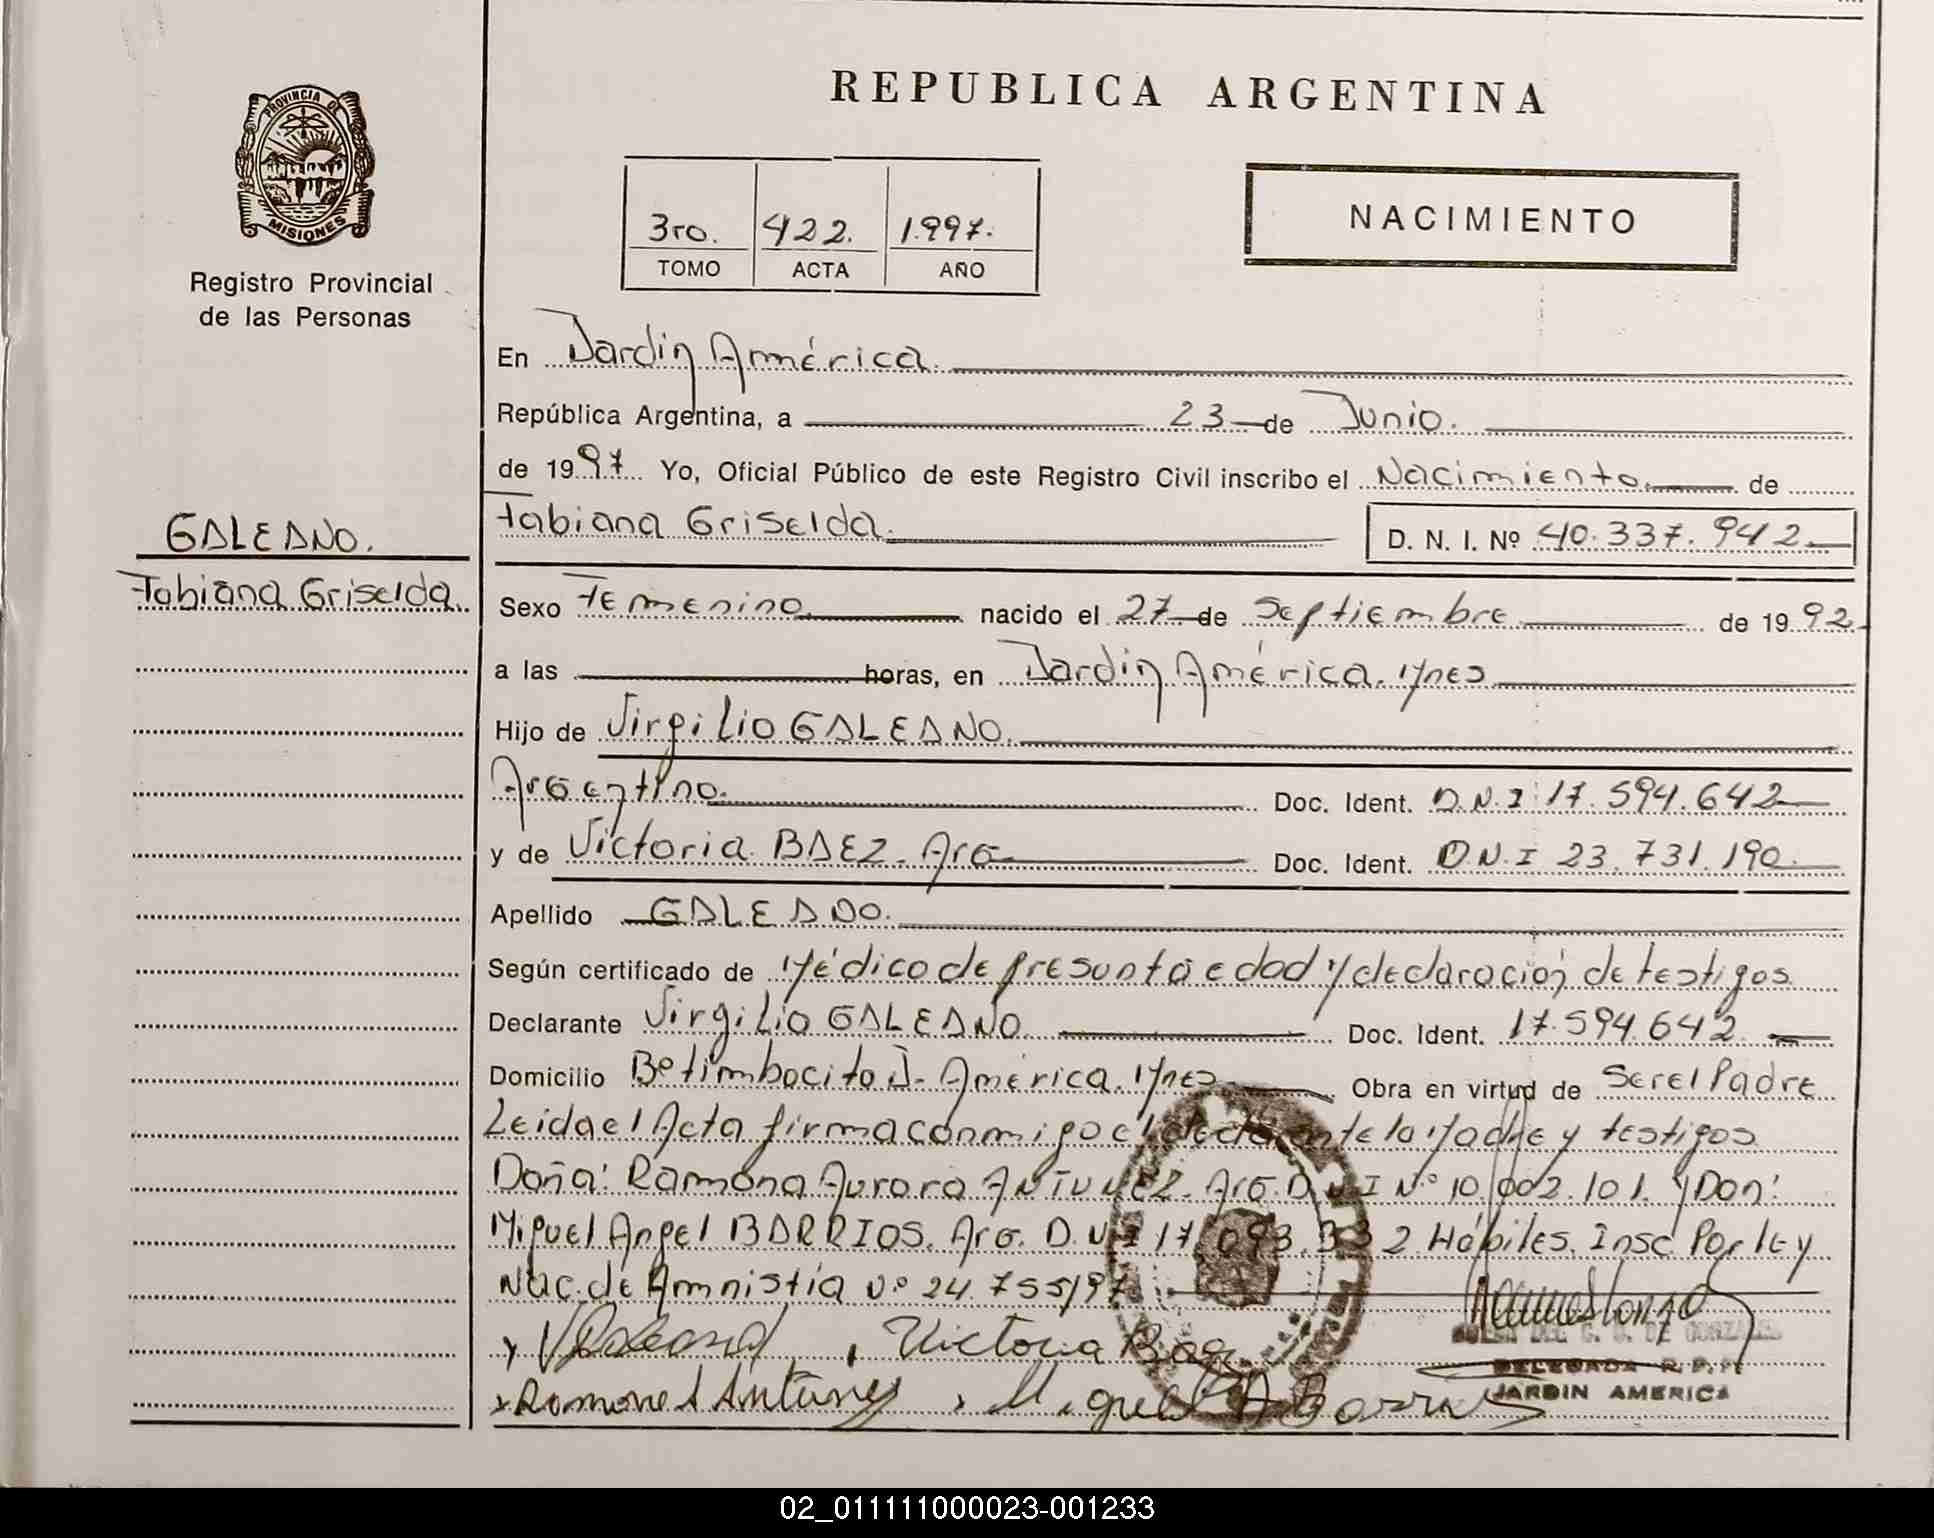 REPUBLICA ARGENTINA
PROVINCIA DE
MISIONES
Registro Provincial
de las Personas
3ro. 422. 1.997.
TOMO ACTA AÑO
NACIMIENTO
En Jardín América.
República Argentina, a 23 de Junio.
de 1997 Yo, Oficial Público de este Registro Civil inscribo el Nacimiento. de
Fabiana Griselda. D. N. I. Nº 40.337.942
GALEANO.
Fabiana Griselda.
Sexo Femenino. nacido el 27 de Septiembre de 1992.
a las horas, en Jardín América. Mnes
Hijo de Virgilio GALEANO.
Argentino. Doc. Ident. D.N.I 17.594.642
y de Victoria BAEZ. Arg. Doc. Ident. D.N.I 23.731.190.
Apellido GALEANO.
Según certificado de Médico de presunta edad y declaración de testigos.
Declarante Virgilio GALEANO Doc. Ident. 17.594.642
Domicilio Bº timbocito J. América. Mnes Obra en virtud de Ser el Padre
Leida el Acta firma conmigo el declarante la Madre y testigos
Doña: Ramona Aurora ANTUNEZ. Arg. D.N.I Nº 10.002.101. y Don:
Miguel Angel BARRIOS. Arg. D.N.I 17.093.332 Hábiles. Insc Por ley
Nac. de Amnistia nº 24.755/97
Victoria Baez
DE GONZALEZ
DELEGADA R.P.P.
JARDIN AMERICA
Ramona A Antunez Miguel A Barrios
02_011111000023-001233